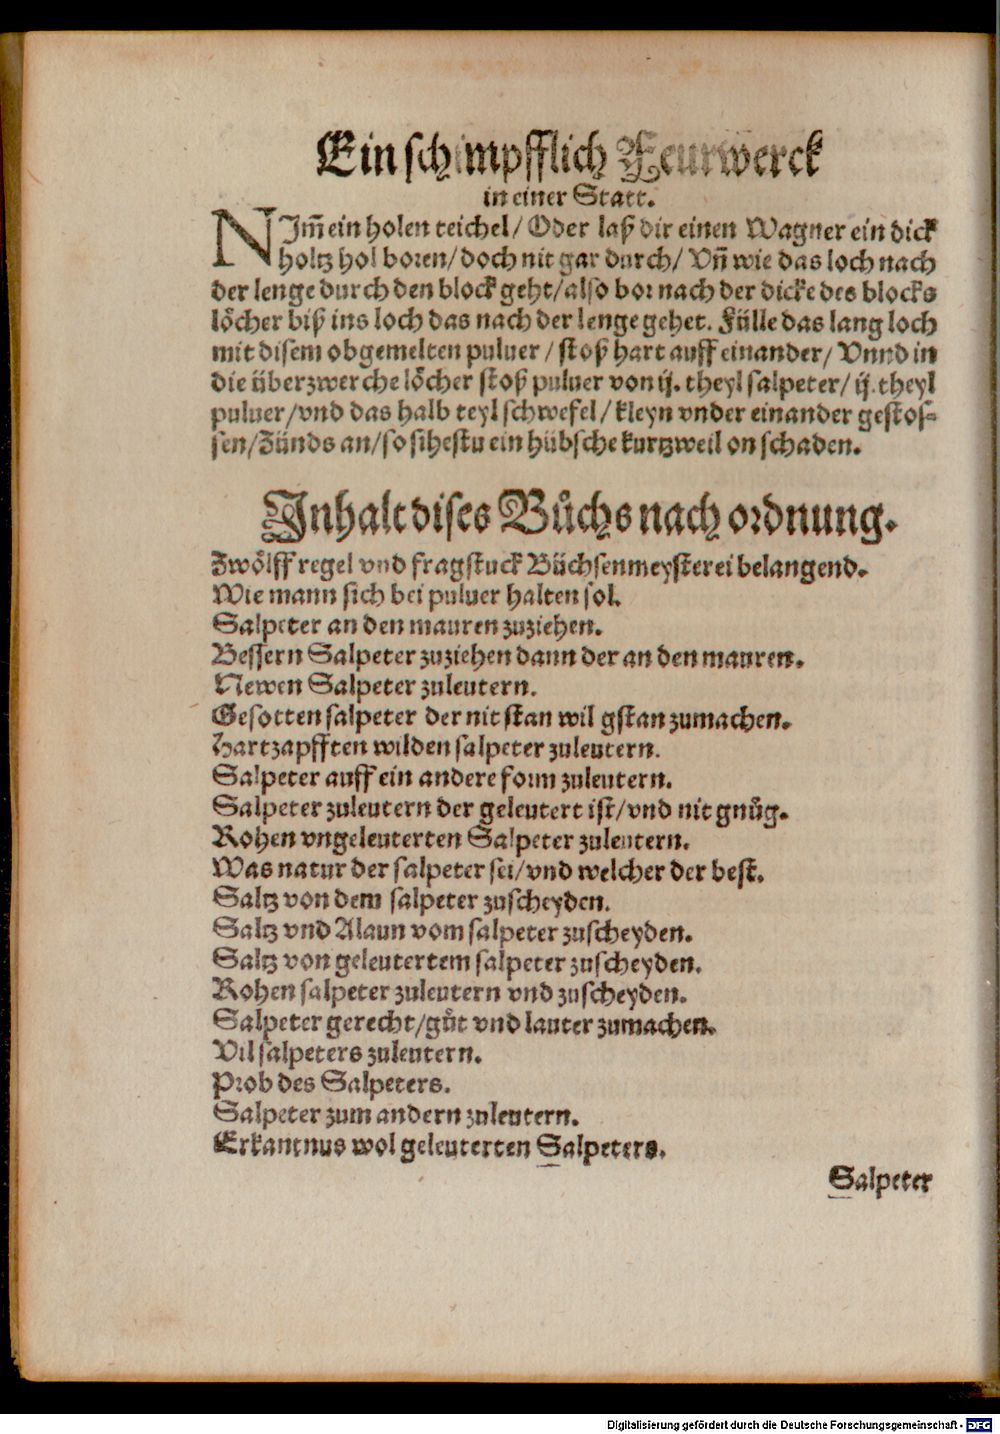 Ein schimpfflich Feurwerck
in einer Statt.
NJm̃ ein holen teichel/ Oder laß dir einen Wagner ein dick
holtz hol boren/ doch nit gar durch/ Vñ wie das loch nach
der lenge durch den block geht/ also bor nach der dicke des blocks
löcher biß ins loch das nach der lenge gehet. Fülle das lang loch
mit disem obgemelten puluer / stoß hart auff einander/ Vnnd in
die überzwerche löcher stoß puluer von ij. theyl salpeter/ ij. theyl
puluer/ vnd das halb teyl schwefel/ kleyn vnder einander gestos⸗
sen/ Zünds an/ so sihestu ein hübsche kurtzweil on schaden.
Jnhalt dises Bůchs nach ordnung.
Zwölff regel vnd fragstuck Büchsenmeysterei belangend.
Wie mann sich bei puluer halten sol.
Salpeter an den mauren zuziehen.
Bessern Salpeter zuziehen dann der an den mauren.
Newen Salpeter zuleutern.
Gesotten salpeter der nit stan wil gstan zumachen.
Hartzapfften wilden salpeter zuleutern.
Salpeter auff ein andere form zuleutern.
Salpeter zuleutern der geleutert ist/ vnd nit gnůg.
Rohen vngeleuterten Salpeter zuleutern.
Was natur der salpeter sei/ vnd welcher der best.
Saltz von dem salpeter zuscheyden.
Saltz vnd Alaun vom salpeter zuscheyden.
Saltz von geleutertem salpeter zuscheyden.
Rohen salpeter zuleutern vnd zuscheyden.
Salpeter gerecht/ gůt vnd lauter zumachen.
Vil salpeters zuleutern.
Prob des Salpeters.
Salpeter zum andern zuleutern.
Erkantnus wol geleuterten Salpeters.
Salpeter
Digitalisierung gefördert durch die Deutsche Forschungsgemeinschaft - DFG